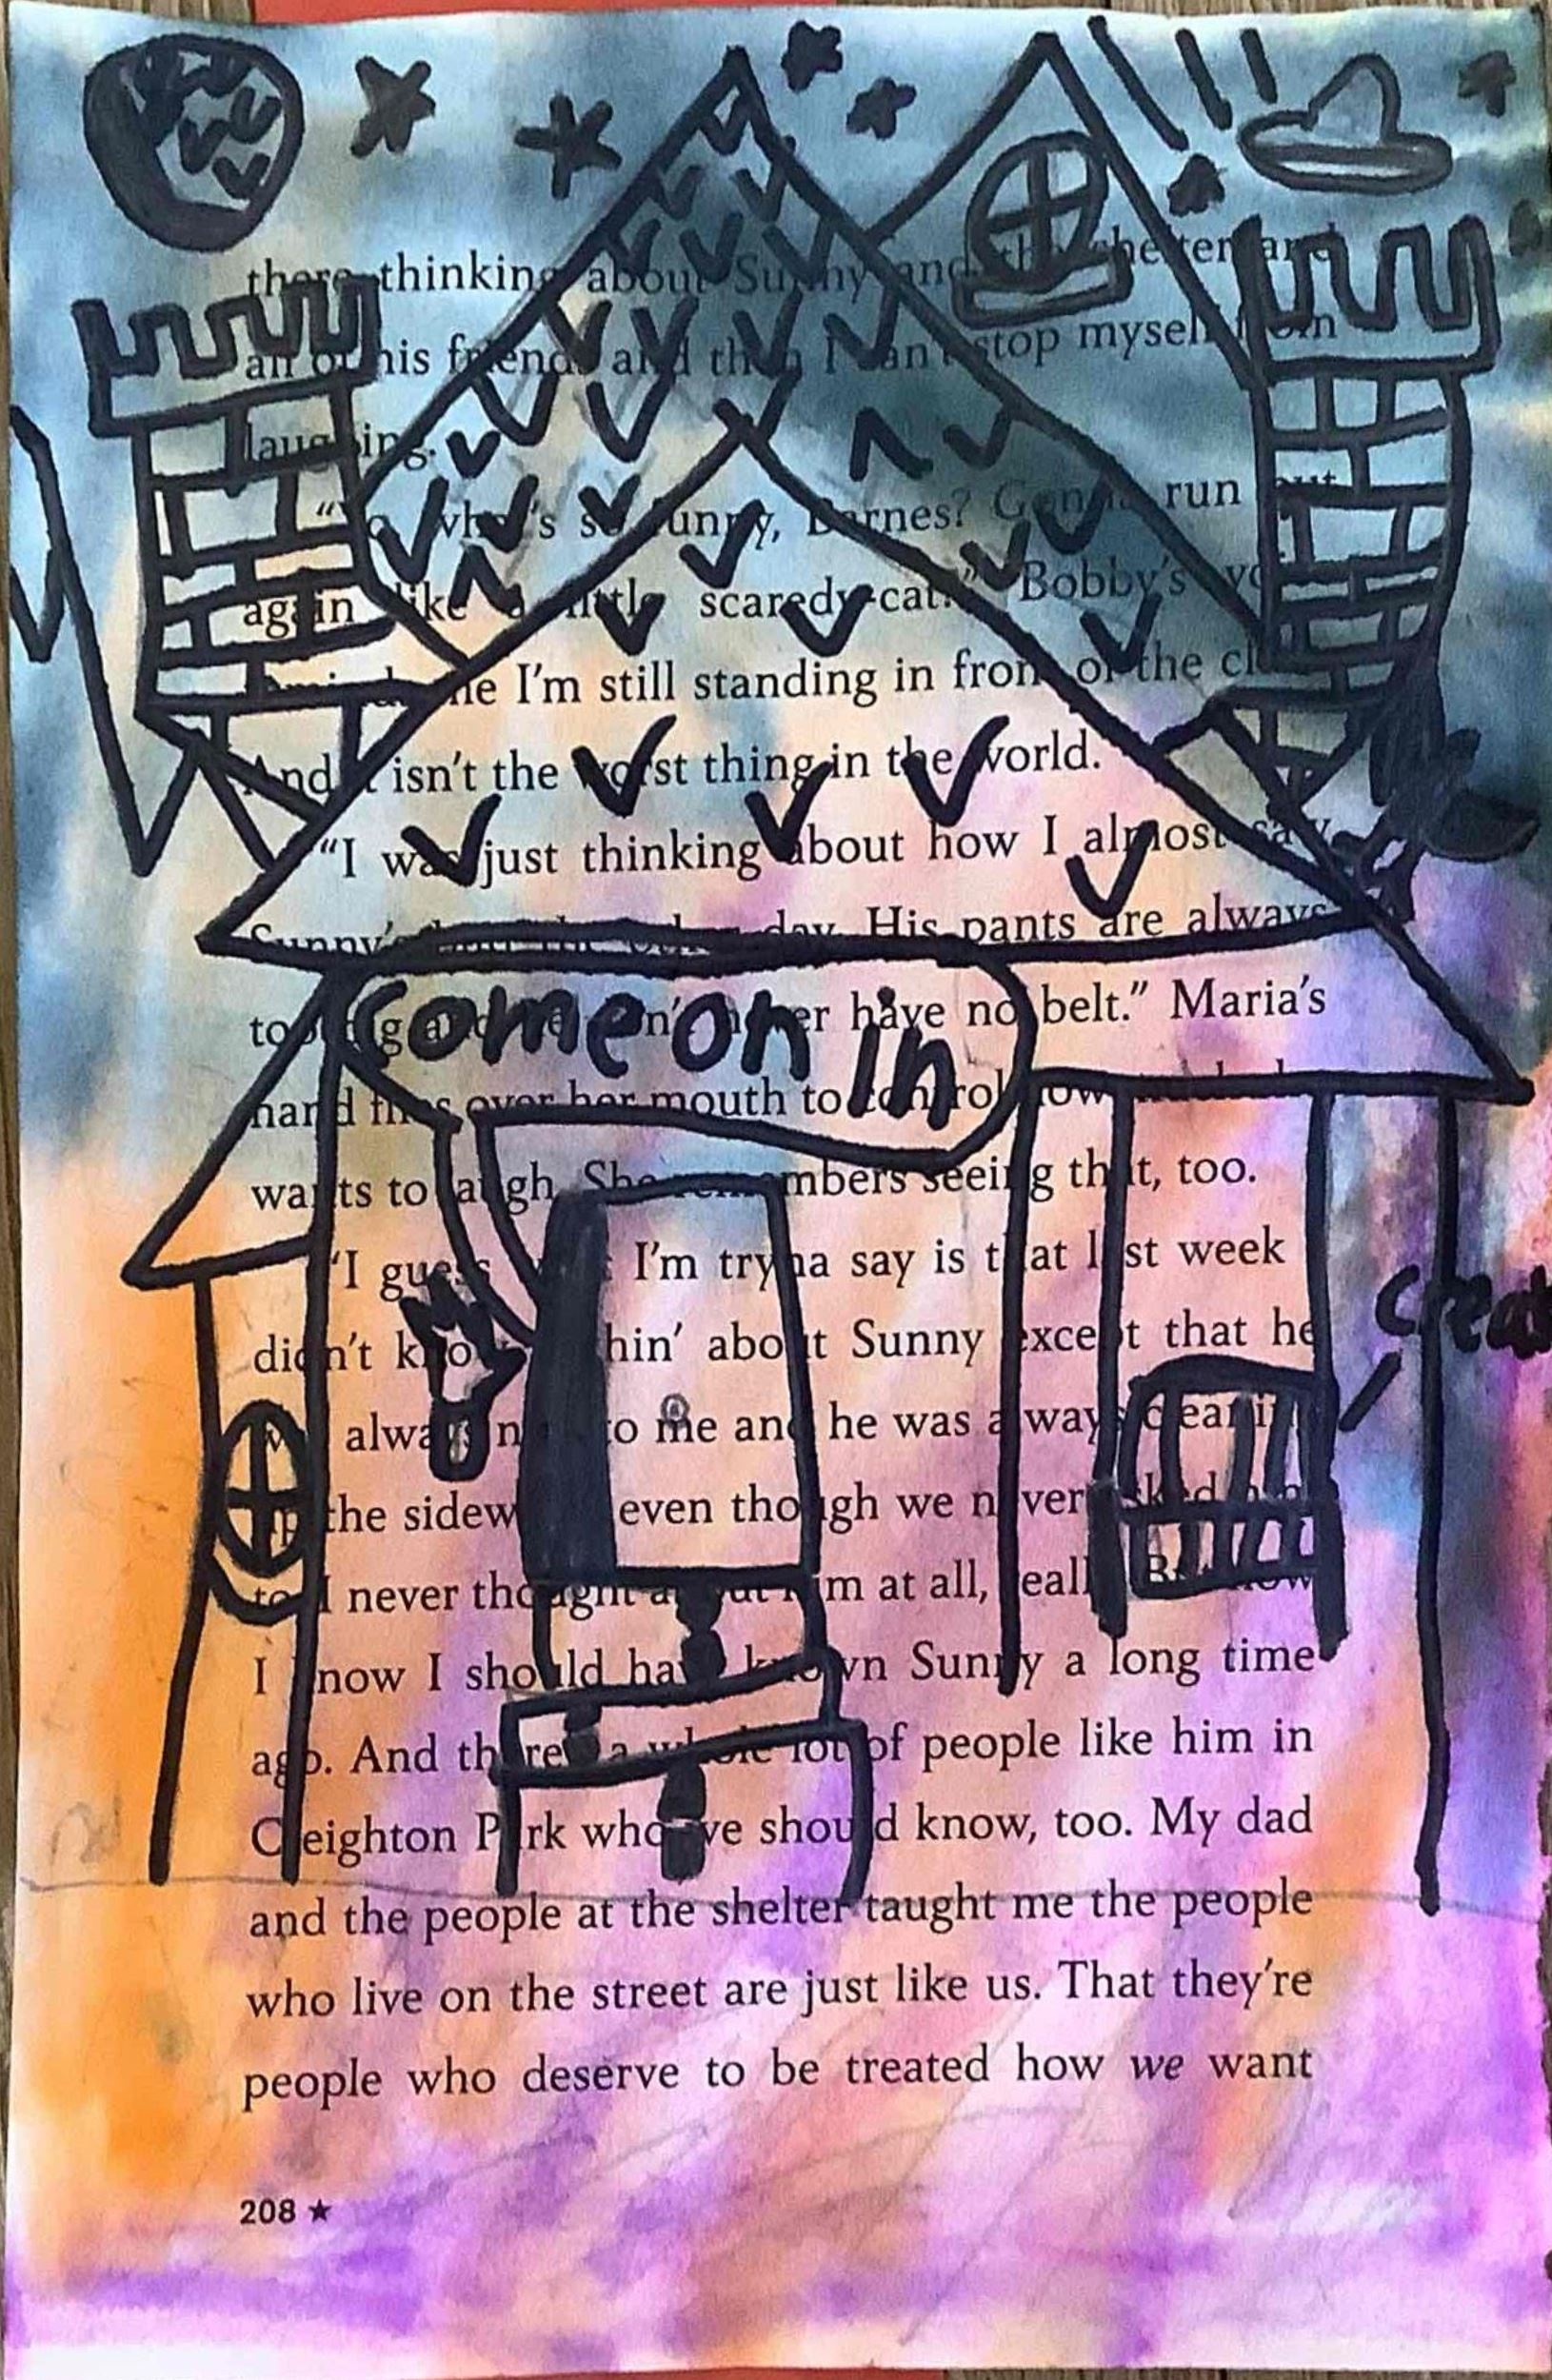 there thinking about Sunny and the shelter and
all of his friends and then I can't stop myself from
laughing.
what's so funny, Barnes? Gonna run out
again like a little scaredy-cat?" Bobby's
me I'm still standing in front of the
And it isn't the worst thing in the world.
"I was just thinking about how I almost saw
Sunny's day. His pants are always
too big and he don't never have no belt." Maria's
come on in
hand flies over her mouth to control how
wants to laugh. She remembers seeing that, too.
"I guess what I'm tryna say is that last week
didn't know about Sunny except that he
creak
always to me and he was always cleaning
up the sidewalk even though we never asked him
to. I never thought about him at all, really. But now
I know I should have known Sunny a long time
ago. And there's a whole lot of people like him in
Creighton Park who we should know, too. My dad
and the people at the shelter taught me the people
who live on the street are just like us. That they're
people who deserve to be treated how we want
208 ★